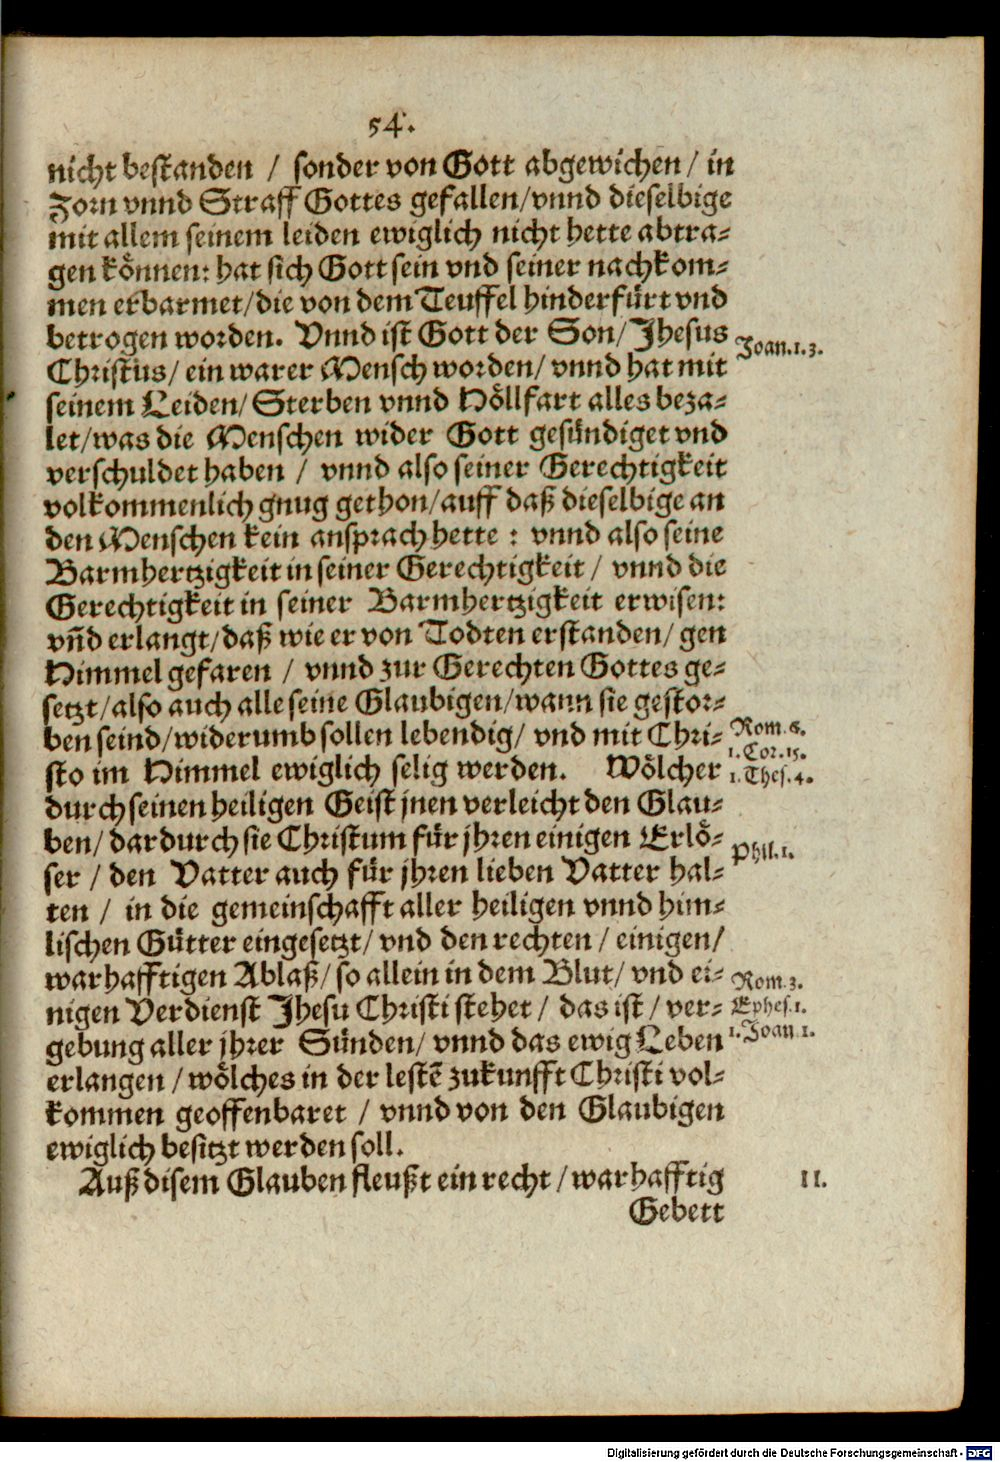 54.
nicht bestanden / sonder von Gott abgewichen / in
Zorn vnnd Straff Gottes gefallen/vnnd dieselbige
mit allem seinem leiden ewiglich nicht hette abtra-
gen können: hat sich Gott sein vnd seiner nachkom-
men erbarmet/die von dem Teuffel hinderfürt vnd
betrogen worden. Vnnd ist Gott der Son/Jhesus
Joan.1.3.
Christus/ ein warer Mensch worden/ vnnd hat mit
seinem Leiden/Sterben vnnd Höllfart alles beza-
let/was die Menschen wider Gott gesündiget vnd
verschuldet haben / vnnd also seiner Gerechtigkeit
volkommenlich gnug gethon/auff daß dieselbige an
den Menschen kein ansprach hette : vnnd also seine
Barmhertzigkeit in seiner Gerechtigkeit / vnnd die
Gerechtigkeit in seiner Barmhertzigkeit erwisen:
vñd erlangt/daß wie er von Todten erstanden/ gen
Himmel gefaren / vnnd zur Gerechten Gottes ge-
setzt/also auch alle seine Glaubigen/wann sie gestor-
ben seind/widerumb sollen lebendig/ vnd mit Chri-
Rom.6.
1.Cor.15.
sto im Himmel ewiglich selig werden. Wölcher
1.Thes.4.
durch seinen heiligen Geist jnen verleicht den Glau-
ben/ dardurch sie Christum für jhren einigen Erlö-
Phil.1.
ser / den Vatter auch für jhren lieben Vatter hal-
ten / in die gemeinschafft aller heiligen vnnd him-
lischen Gütter eingesetzt/ vnd den rechten / einigen/
warhafftigen Ablaß/ so allein in dem Blut/ vnd ei-
Rom.3.
nigen Verdienst Jhesu Christi stehet / das ist / ver-
Ephes.1.
gebung aller jhrer Sünden/ vnnd das ewig Leben
1.Joan 1.
erlangen / wölches in der lestē zukunfft Christi vol-
kommen geoffenbaret / vnnd von den Glaubigen
ewiglich besitzt werden soll.
Auß disem Glauben fleußt ein recht / warhafftig
11.
Gebett
Digitalisierung gefördert durch die Deutsche Forschungsgemeinschaft - DFG